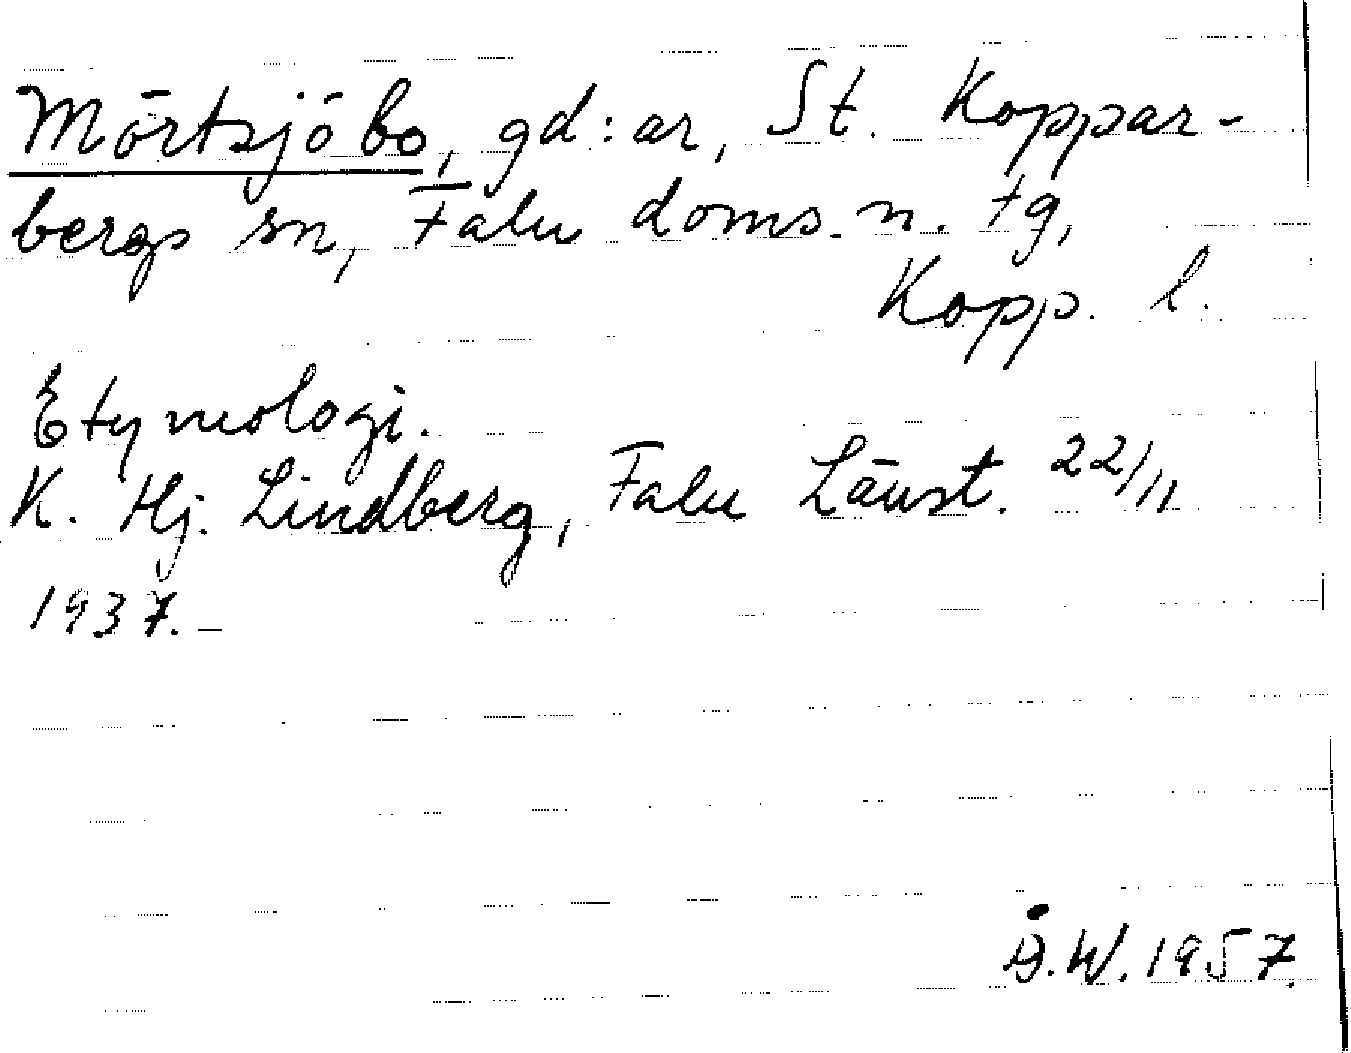 Mörtsjöbo, gd:ar, St. Koppar-
bergs sn, Falu doms. n. tg,
Kopp. l.
Etymologi.
K. Hj. Lindberg, Falu Länst. 22/11
1937.-
Å.W. 1957.